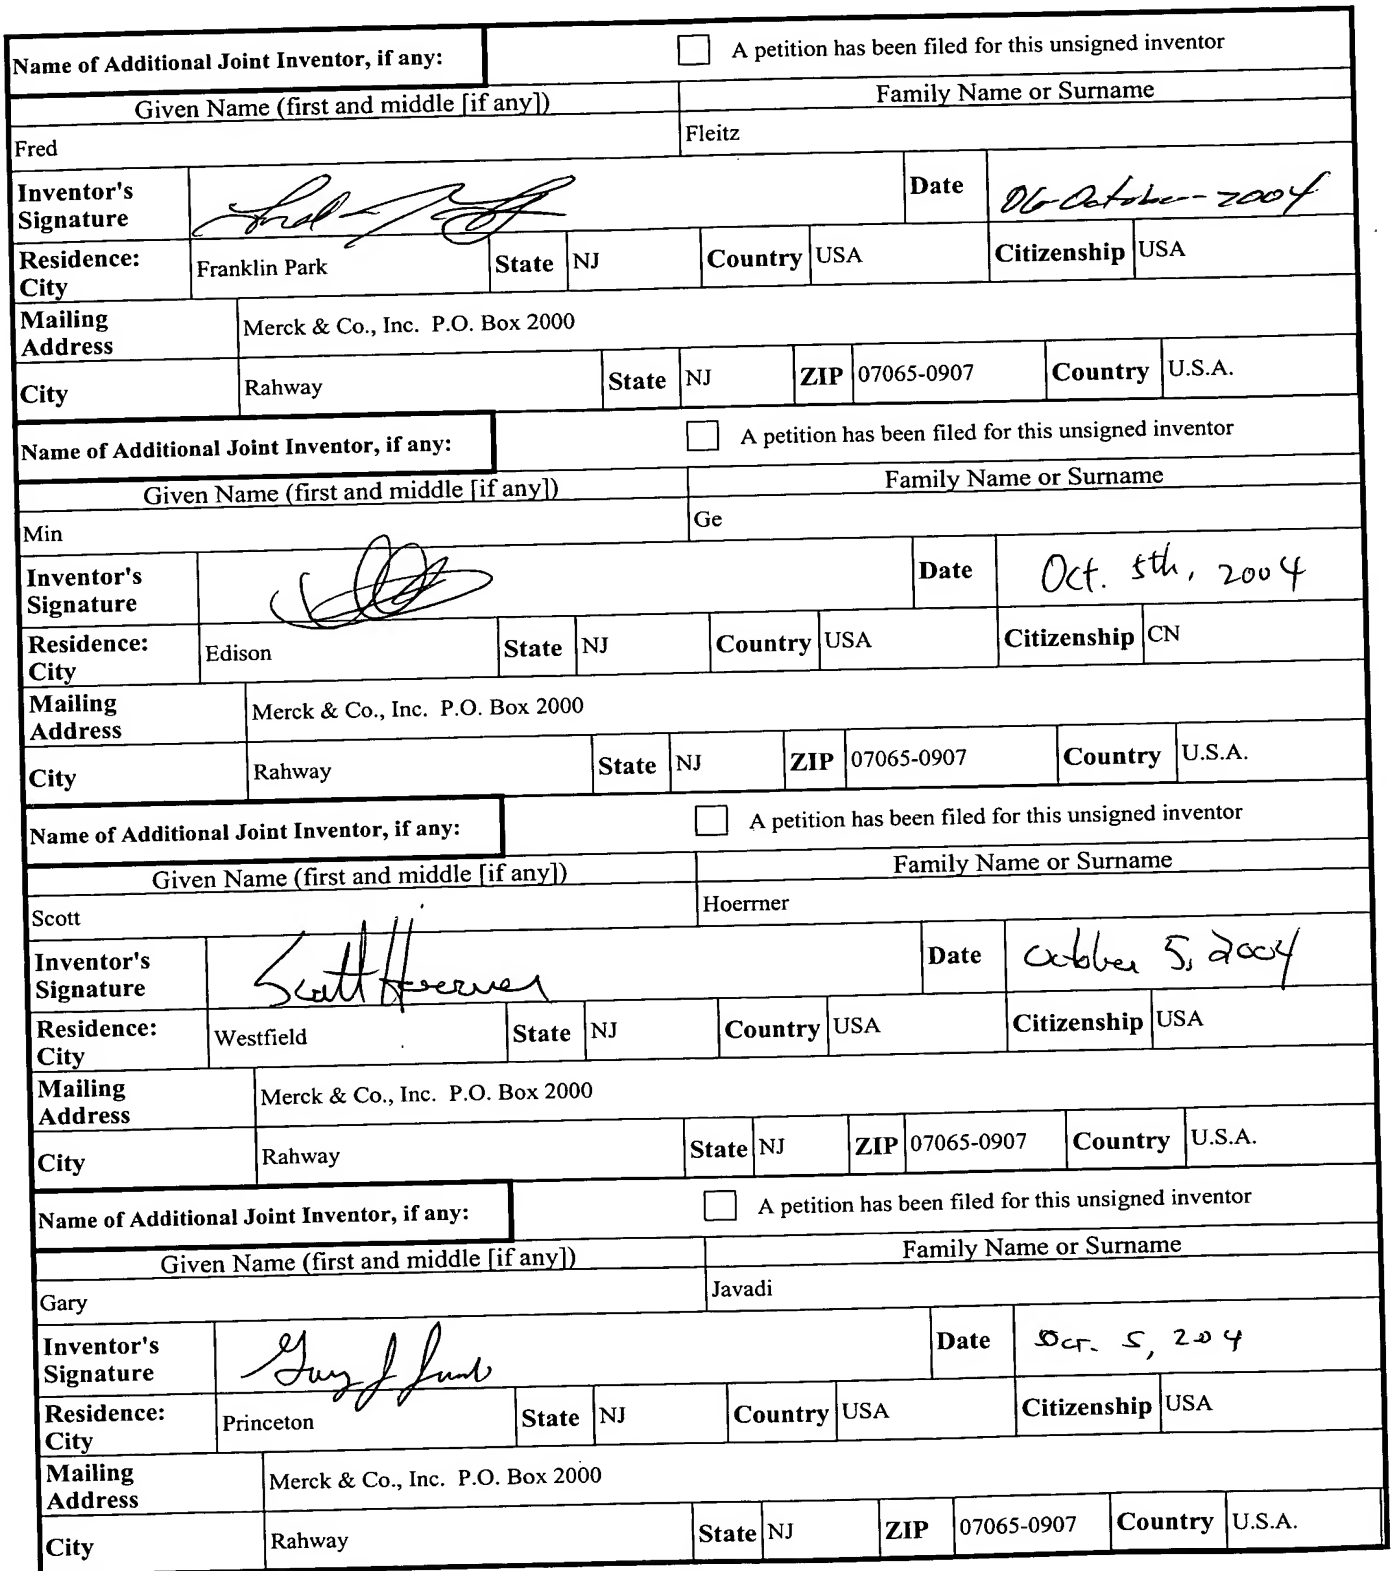 Name of Additional Joint Inventor, if any: A petition has been filed for this unsigned inventor
Given Name (first and middle [if any]) Family Name or Surname
Fred Fleitz
Inventor's Signature Date 06-October-2004
Residence: City Franklin Park State NJ Country USA Citizenship USA
Mailing Address Merck & Co., Inc. P.O. Box 2000
City Rahway State NJ ZIP 07065-0907 Country U.S.A.
Name of Additional Joint Inventor, if any: A petition has been filed for this unsigned inventor
Given Name (first and middle [if any]) Family Name or Surname
Min Ge
Inventor's Signature Date Oct. 5th, 2004
Residence: City Edison State NJ Country USA Citizenship CN
Mailing Address Merck & Co., Inc. P.O. Box 2000
City Rahway State NJ ZIP 07065-0907 Country U.S.A.
Name of Additional Joint Inventor, if any: A petition has been filed for this unsigned inventor
Given Name (first and middle [if any]) Family Name or Surname
Scott Hoerrner
Inventor's Signature Scott Hoerrner Date October 5, 2004
Residence: City Westfield State NJ Country USA Citizenship USA
Mailing Address Merck & Co., Inc. P.O. Box 2000
City Rahway State NJ ZIP 07065-0907 Country U.S.A.
Name of Additional Joint Inventor, if any: A petition has been filed for this unsigned inventor
Given Name (first and middle [if any]) Family Name or Surname
Gary Javadi
Inventor's Signature Gary J Date Oct. 5, 2004
Residence: City Princeton State NJ Country USA Citizenship USA
Mailing Address Merck & Co., Inc. P.O. Box 2000
City Rahway State NJ ZIP 07065-0907 Country U.S.A.